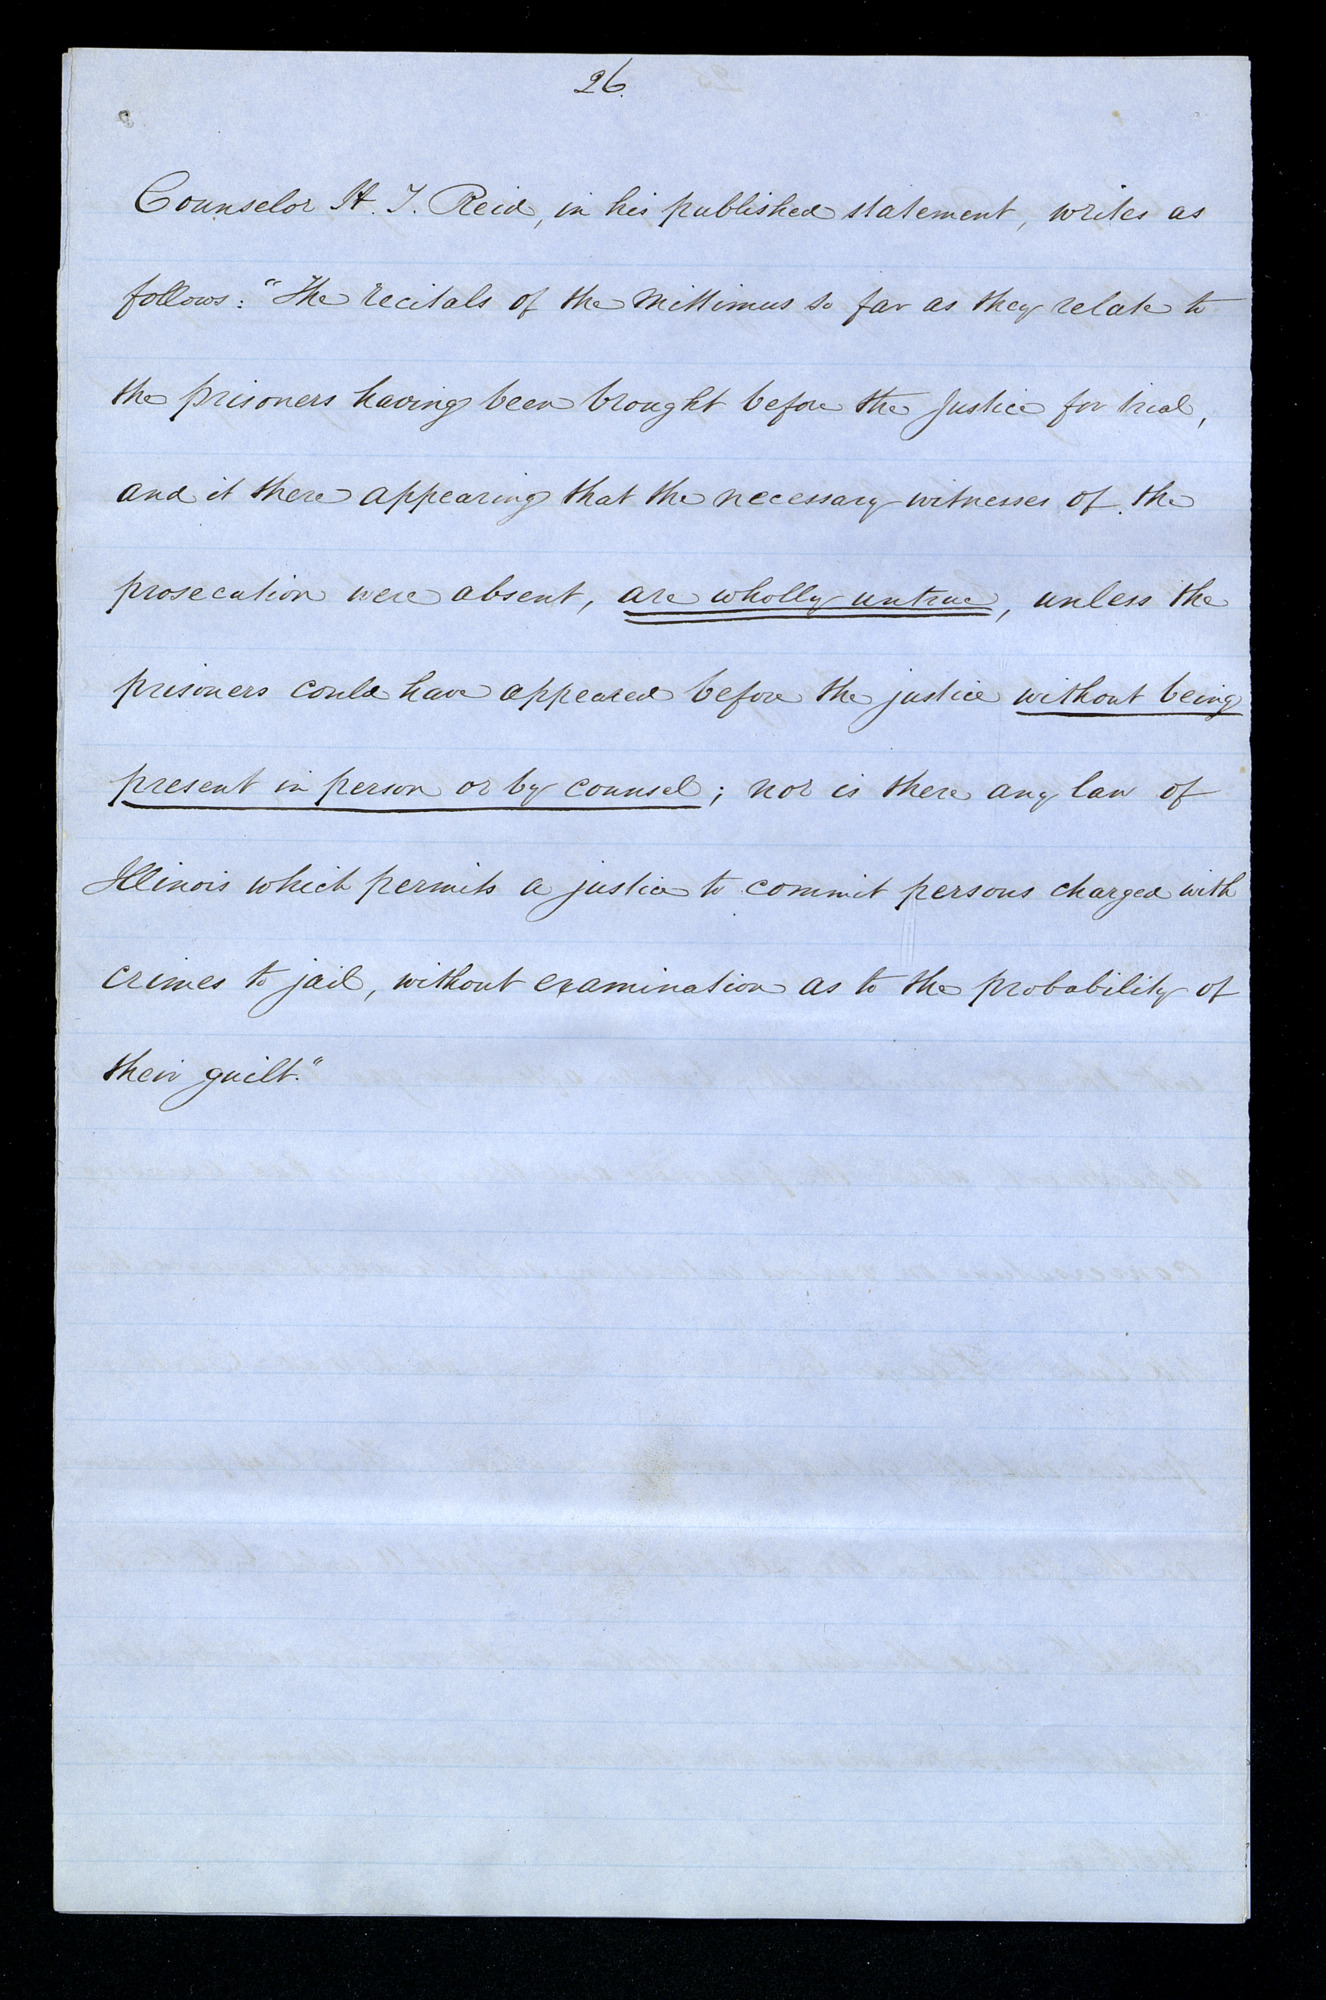 26.
Counselor H. T. Reid, in his published statement, writes as
follows: "The recitals of the Mittimus so far as they relate to
the prisoners having been brought before the Justice for trial,
and it there appearing that the necessary witnesses of the
prosecution were absent, are wholly untrue, unless the
prisoners could have appeared before the justice without being
present in person or by counsel; nor is there any law of
Illinois which permits a justice to commit persons charged with
crimes to jail, without examination as to the probability of
their guilt."